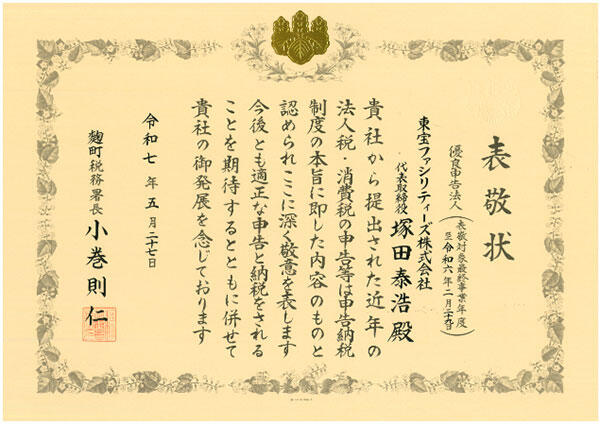 表敬状
優良申告法人（表敬対象最終事業年度 至令和六年二月二十九日）
東宝ファシリティーズ株式会社
代表取締役 塚田泰浩殿
貴社から提出された近年の
法人税・消費税の申告等は申告納税
制度の本旨に即した内容のものと
認められここに深く敬意を表します
今後とも適正な申告と納税をされる
ことを期待するとともに併せて
貴社の御発展を念じております
令和七年五月二十七日
麹町税務署長 小巻則仁